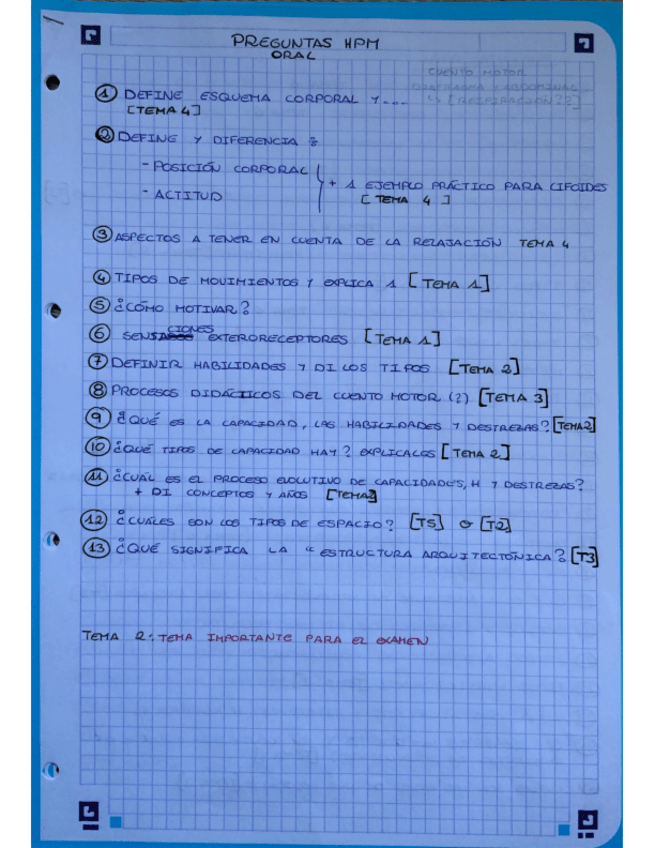 PREGUNTAS HPM
ORAL
CUENTO MOTOR
DIAFRAGMA Y ABDOMINAL
↳ [RESPIRACIÓN??]
① DEFINE ESQUEMA CORPORAL Y....
[TEMA 4]
② DEFINE Y DIFERENCIA :
- POSICIÓN CORPORAL
+ 1 EJEMPLO PRÁCTICO PARA CIFOIDES
- ACTITUD
[TEMA 4]
③ ASPECTOS A TENER EN CUENTA DE LA RELAJACIÓN TEMA 4
④ TIPOS DE MOVIMIENTOS Y EXPLICA 1 [TEMA 1]
⑤ ¿CÓMO MOTIVAR?
⑥ SENSACIONES EXTERORECEPTORES [TEMA 1]
⑦ DEFINIR HABILIDADES Y DI LOS TIPOS [TEMA 2]
⑧ PROCESOS DIDÁCTICOS DEL CUENTO MOTOR (?) [TEMA 3]
⑨ ¿QUÉ ES LA CAPACIDAD, LAS HABILIDADES Y DESTREZAS? [TEMA2]
⑩ ¿QUÉ TIPOS DE CAPACIDAD HAY? EXPLICALOS [TEMA 2]
⑪ ¿CUÁL ES EL PROCESO EVOLUTIVO DE CAPACIDADES, H Y DESTREZAS?
+ DI CONCEPTOS Y AÑOS [TEMA2]
⑫ ¿CUÁLES SON LOS TIPOS DE ESPACIO? [T5] O [T2]
⑬ ¿QUÉ SIGNIFICA LA "ESTRUCTURA ARQUITECTÓNICA? [T3]
TEMA 2: TEMA IMPORTANTE PARA EL EXAMEN